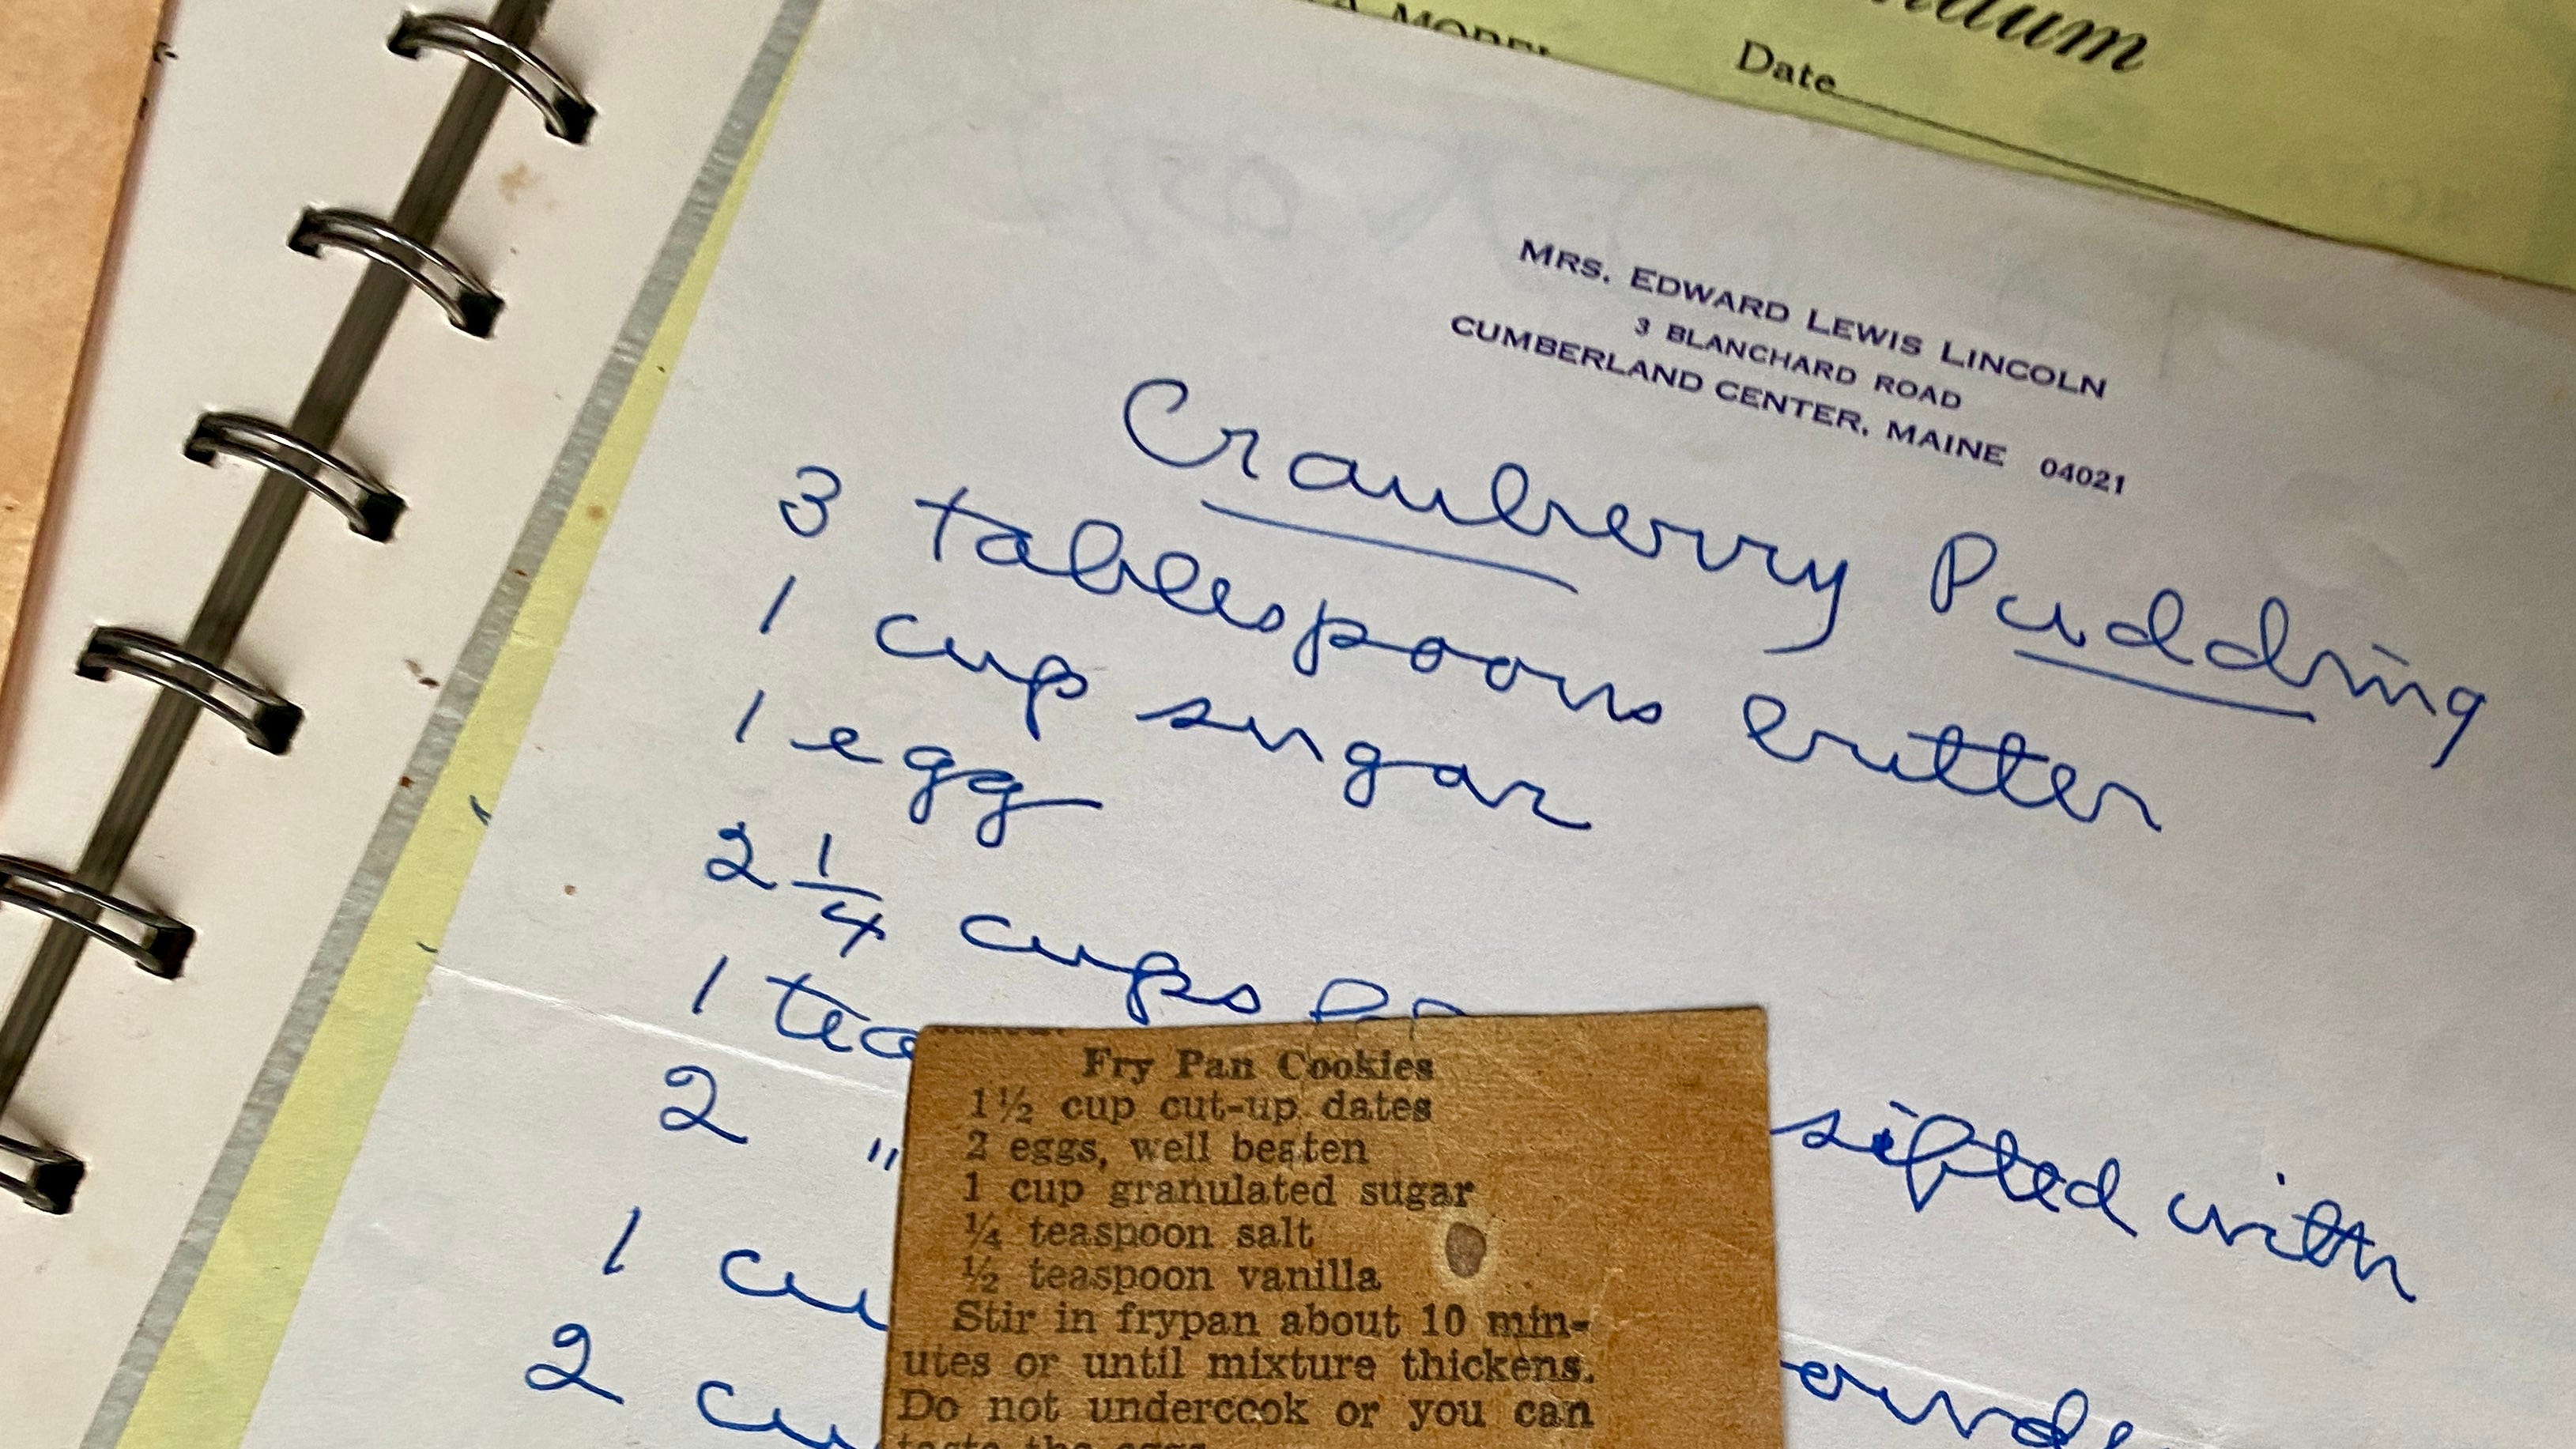 Date
MRS. EDWARD LEWIS LINCOLN
3 BLANCHARD ROAD
CUMBERLAND CENTER, MAINE 04021
Cranberry Pudding
3 tablespoons butter
1 cup sugar
1 egg
2 1/4 cups
1
2 " sifted with
1
2
Fry Pan Cookies
1½ cup cut-up dates
2 eggs, well beaten
1 cup granulated sugar
¼ teaspoon salt
½ teaspoon vanilla
Stir in frypan about 10 min-
utes or until mixture thickens.
Do not undercook or you can
taste the eggs